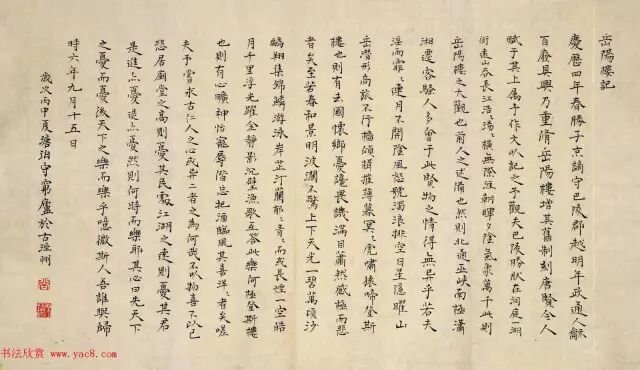 岳陽樓記
慶曆四年春滕子京謫守巴陵郡越明年政通人龢
百廢具興乃重脩岳陽樓增其舊制刻唐賢今人
賦于其上屬予作文以記之予觀夫巴陵勝狀在洞庭湖
銜遠山吞長江浩〻湯〻橫無際涯朝暉夕陰氣象萬千此則
岳陽樓之大觀也前人之述備也然則北通巫峽南極瀟
湘遷客騷人多會于此覽物之情得無異乎若夫
淫雨霏〻連月不開陰風怒號濁浪排空日星隱曜山
岳潛形商旅不行檣傾楫摧薄暮冥〻虎嘯猿啼登斯
樓也則有去國懷鄉憂讒畏譏滿目蕭然感極而悲
者矣至若春和景明波瀾不驚上下天光一碧萬頃沙
鷗翔集錦鱗游泳岸芷汀蘭郁〻青〻而或長煙一空皓
月千里浮光躍金靜影沉璧漁歌互答此樂何極登斯樓
也則有心曠神怡寵辱皆忘把酒臨風其喜洋〻者矣嗟
夫予嘗求古仁人之心或異二者之為何哉不以物喜不以己
悲居廟堂之高則憂其民處江湖之遠則憂其君
是進亦憂退亦憂然則何時而樂耶其心曰先天下
之憂而憂後天下之樂而樂乎噫微斯人吾誰與歸
時六年九月十五日
歲次丙申夏守窮廬於古涇州
书法欣赏 www.yac8.com